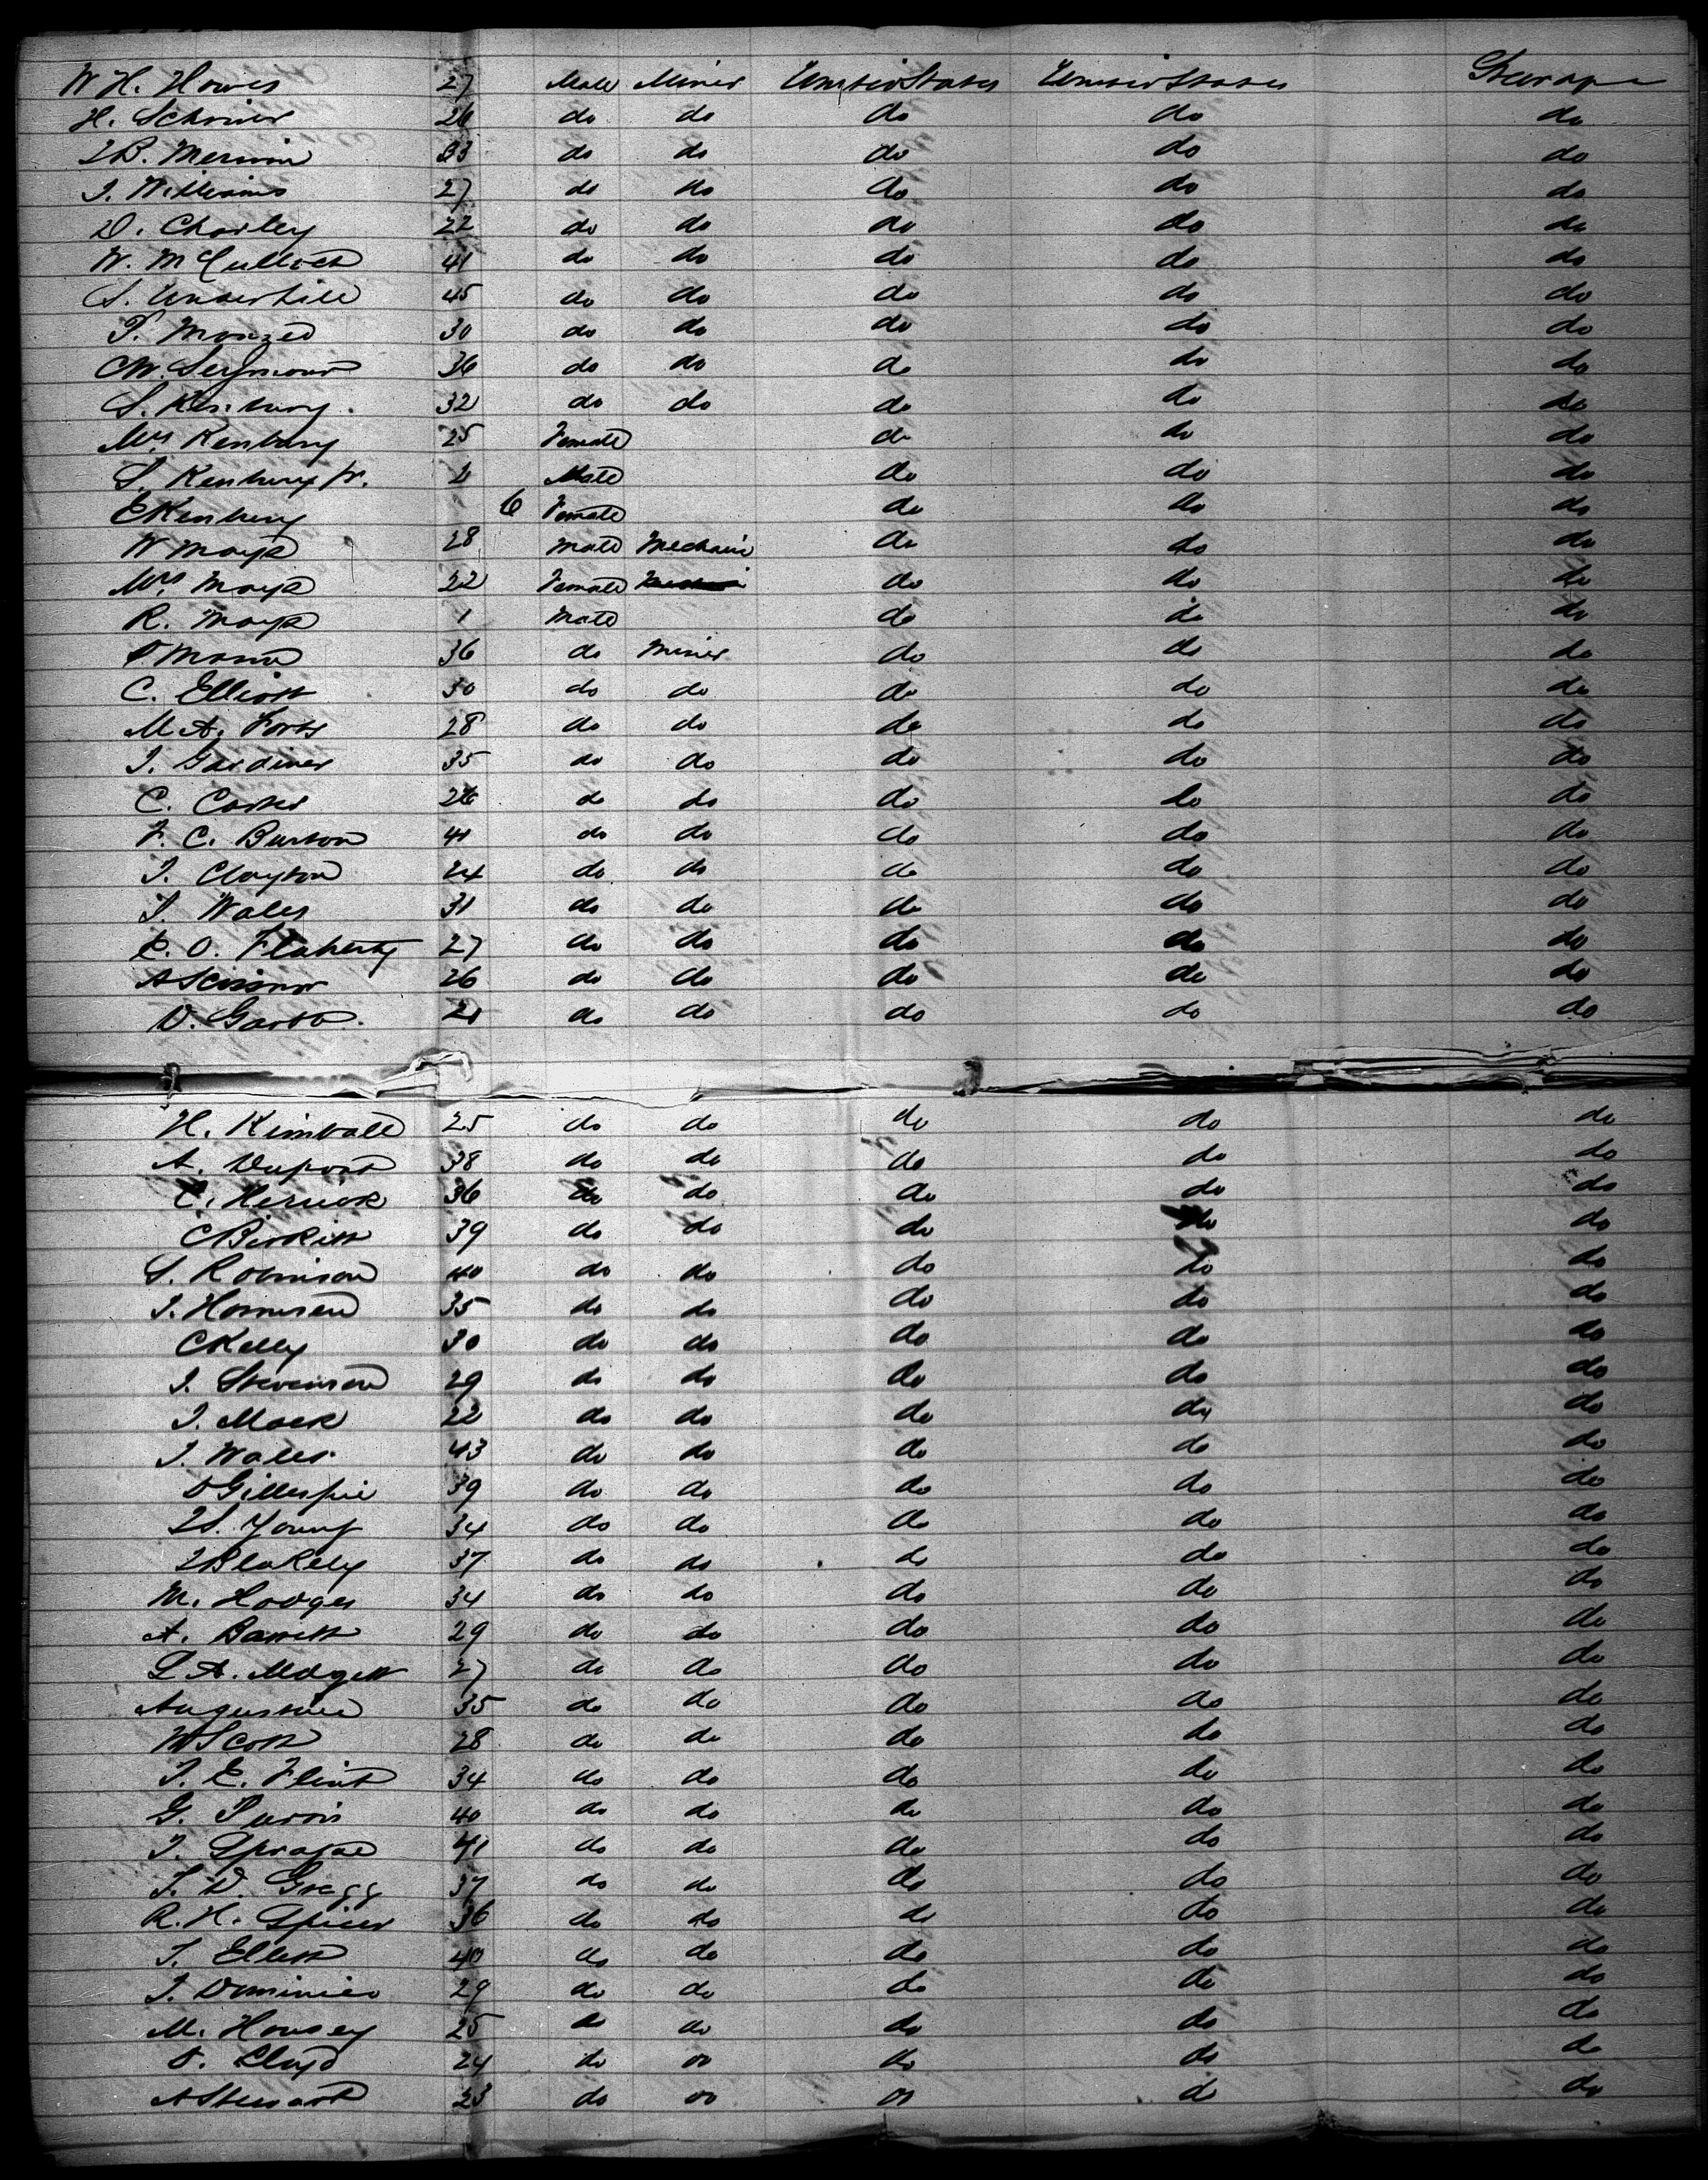 W H. Howes 27 Male Miner United States United States Steerage
H. Schriver 26 do do do do do
I B. Merwin 33 do do do do do
J. Williams 27 do do do do do
D. Charley 22 do do do do do
W. McCulloch 41 do do do do do
S. Underhill 45 do do do do do
T. 30 do do do do do
M. Seymour 36 do do do do do
S. Kenbury. 32 do do do do do
Mrs Kenbury 25 Female do do do
S. Kenbury Jr. 2 Male do do do
E Kenbury 6 Female do do do
W Mays 28 Male Mechanic do do do
Mrs Mays 22 Female do do do
R. Mays 1 Male do do do
Mann 36 do Miner do do do
C. Elliott 30 do do do do do
M A. Forbs 28 do do do do do
J. Gardiner 35 do do do do do
C. Carter do do do do do
F. C. Burton 41 do do do do do
J. Clayton 24 do do do do do
J. Wales 31 do do do do do
E. O. Flaherty 27 do do do do do
A 26 do do do do do
D. Garth. 21 do do do do do
H. Kimball 25 do do do do do
A. Dupont 38 do do do do do
C. Herrick 36 do do do do do
C Birkitt 39 do do do do do
S. Robinson 40 do do do do do
J. Harrison 35 do do do do do
C Kelly 30 do do do do do
J. Stevenson 29 do do do do do
J. Mack 22 do do do do do
J. Wales. 43 do do do do do
O Gillespie 39 do do do do do
I S. Young 34 do do do do do
I Blakely 37 do do do do do
M. Hodges 34 do do do do do
A. Barrett 29 do do do do do
L A. Modgett 27 do do do do do
Augustine 35 do do do do do
W Scott 28 do do do do do
J. E. Flint 34 do do do do do
G. Purvis 40 do do do do do
J. Sprague 41 do do do do do
J. D. Gregg 37 do do do do do
R. H. Spicer 36 do do do do do
J. Ellett 40 do do do do do
J. Dominico 29 do do do do do
M. Housey 25 do do do do do
D. Lloyd 24 do do do do do
A Stewart 23 do do do do do